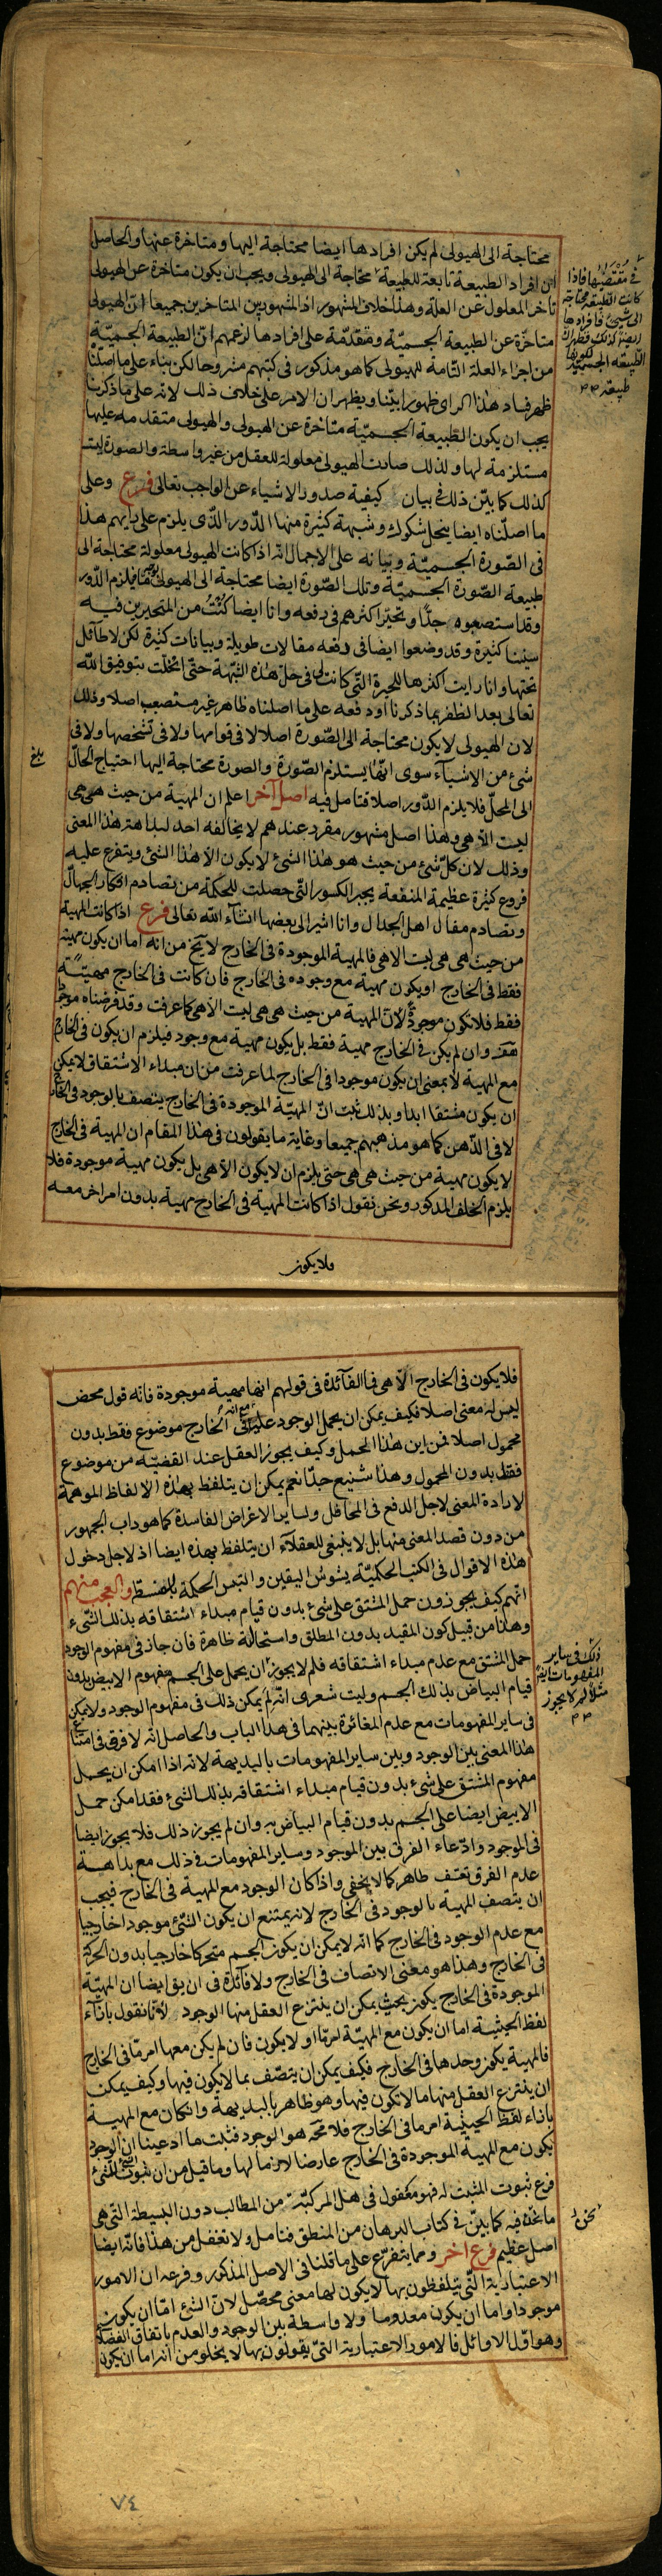 محتاجة الى الهيولى لم يكن افرادها ايضا محتاجة اليها ومتاخرة عنها والحاصل
ان افراد الطبيعة تابعة للطبيعة محتاجة الى الهيولى ويجب ان يكون متاخرة عن الهيولى
تاخر المعلول عن العلة وهذا خلاف المشهور اذ المشهور بين المتاخرين جميعا ان الهيولى
متاخرة عن الطبيعة الجسمية ومتقدمة على افرادها لزعمهم ان الطبيعة الجسمية
من اجزاء العلة التامة للهيولى كما هو مذكور فى كتبهم مشروحا لكن بناء على ما اصلنا
ظهر فساد هذا الراى ظهورا بينا ويظهر ان الامر على خلاف ذلك لانه على ما ذكرنا
يجب ان يكون الطبيعة الجسمية متاخرة عن الهيولى والهيولى متقدمه عليها
مستلزمة لها ولذلك صارت الهيولى معلولة للعقل من غير واسطة والصورة ليست
كذلك كما بين ذلك فى بيان كيفية صدور الاشياء عن الواجب تعالى فرع وعلى
ما اصلناه ايضا ينحل شكوك وشبهة كثيرة منها الدور الذى يلزم على رايهم هذا
فى الصورة الجسمية وبيانه على الاجمال انه اذا كانت الهيولى معلولة محتاجة الى
طبيعة الصورة الجسمية وتلك الصورة ايضا محتاجة الى الهيولى فيلزم الدور
وقد استصعبوه جدا وتحير اكثرهم فى دفعه وانا ايضا كنت من المتحيرين فيه
سنينا كثيرة وقد وضعوا ايضا فى دفعه مقالات طويلة وبيانات كثيرة لكن لا طائل
تحتها وانا رايت اكثرها للحيرة التى كانت لى فى حل هذه الشبهة حتى انحلت بتوفيق الله
تعالى بعد الظفر بما ذكرنا ودفعه على ما اصلناه ظاهر غير مستصعب اصلا وذلك
لان الهيولى لا يكون محتاجة الى الصورة اصلا لا فى قوامها ولا فى تشخصها ولا فى
شئ من الاشياء سوى انها يستلزم الصورة والصورة محتاجة اليها احتياج الحال
الى المحل فلا يلزم الدور اصلا فتامل فيه اصل آخر اعلم ان المهية من حيث هى هى
ليست الا هى وهذا اصل مشهور مقرر عندهم لا يخالفه احد لبداهة هذا المعنى
وذلك لان كل شئ من حيث هو هذا الشئ لا يكون الا هذا الشئ ويتفرع عليه
فروع كثيرة عظيمة المنفعة يجبر الكسور التى حصلت للحكمة من تصادم افكار الجهال
وتصادم مقال اهل الجدال وانا اشير الى بعضها انشاء الله تعالى فرع اذا كانت المهية
من حيث هى هى ليست الا هى فالمهية الموجودة فى الخارج لا يخ من انه اما ان يكون مهية
فقط فى الخارج او يكون مهية مع وجوده فى الخارج فان كانت فى الخارج مهية
فقط فلا تكون موجودة لان المهية من حيث هى هى ليست الا هى كما عرفت وقد فرضناه موجودا
هف وان لم يكن فى الخارج مهية فقط بل يكون مهية مع وجود فيلزم ان يكون فى الخارج
مع المهية لا بمعنى ان يكون موجودا فى الخارج لما عرفت من ان مبداء الاشتقاق لا يمكن
ان يكون مشتقا ابدا وبذلك ثبت ان المهية الموجودة فى الخارج يتصف بالوجود فى الخارج
لا فى الذهن كما هو مذهبهم جميعا وغاية ما يقولون فى هذا المقام ان المهية فى الخارج
لا يكون مهية من حيث هى هى حتى يلزم ان لا يكون الا هى بل يكون مهية موجودة فلا
يلزم الخلف المذكور ونحن نقول اذا كانت المهية فى الخارج مهية بدون امر اخر معه
فلا يكون
فى مقتضيها فاذا
كانت الطبيعة محتاجة
الى شئ فافرادها
ايضا كذلك
الطبيعة الجسمية لكونها
طبيعة
بلغ
فلا يكون فى الخارج الا هى فما الفائدة فى قولهم انها مهية موجودة فانه قول محض
ليس له معنى اصلا فكيف يمكن ان يحمل الوجود عليه مع انه فى الخارج موضوع فقط بدون
محمول اصلا فمن اين هذا الحمل وكيف يجوز العقل عند القضية من موضوع
فقط بدون المحمول وهذا شنيع جدا نعم يمكن ان يتلفظ بهذه الالفاظ الموهمة
لارادة المعنى لاجل الدفع فى المحافل ولساير الاغراض الفاسدة كما هو داب الجمهور
من دون قصد المعنى منها بل لا ينبغى للعقلاء ان يتلفظ بهذه ايضا اذ لاجل دخول
هذه الاقوال فى الكتب الحكمية يشوش اليقين والتبس الحكمة بالسفسطة والعجب منهم
انهم كيف يجوزون حمل المشتق على شئ بدون قيام مبداء اشتقاقه بذلك الشىء
وهذا من قبيل كون المقيد بدون المطلق واستحالته ظاهرة فان جاز فى مفهوم الوجود
حمل المشتق مع عدم مبداء اشتقاقه فلم لا يجوز ان يحمل على الجسم مفهوم الابيض بدون
قيام البياض بذلك الجسم وليت شعرى انه لم يمكن ذلك فى مفهوم الوجود ولا يمكن
فى ساير المفهومات مع عدم المغائرة بينهما فى هذا الباب والحاصل انه لا فرق فى امتناع
هذا المعنى بين الوجود وبين ساير المفهومات بالبديهة لانه اذا امكن ان يحمل
مفهوم المشتق على شئ بدون قيام مبداء اشتقاقه بذلك الشئ فقد امكن حمل
الابيض ايضا على الجسم بدون قيام البياض به وان لم يجوز ذلك فلا يجوز ايضا
فى الموجود وادعاء الفرق بين الموجود وساير المفهومات فى ذلك مع بداهة
عدم الفرق تعسف ظاهر كما لا يخفى واذا كان الوجود مع المهية فى الخارج فيجب
ان يتصف المهية بالوجود فى الخارج لانه يمتنع ان يكون الشئ موجودا خارجيا
مع عدم الوجود فى الخارج كما انه لا يمكن ان يكون الجسم متحركا خارجيا بدون الحركة
فى الخارج وهذا هو معنى الاتصاف فى الخارج ولا فائدة فى ان يق ايضا ان المهية
الموجودة فى الخارج يكون بحيث يمكن ان ينتزع العقل منها الوجود لانا نقول بازاء
لفظ الحيثية اما ان يكون مع المهية امر ما او لا يكون فان لم يكن معها امر ما فى الخارج
فالمهية يكون وحدها فى الخارج فكيف يمكن ان يتصف بما لا يكون فيها وكيف يمكن
ان ينتزع العقل منها ما لا تكون فيها وهو ظاهر بالبديهة وان كان مع المهية
بازاء لفظ الحيثية امر ما فى الخارج فلا محة هو الوجود فثبت ما ادعينا ان الوجود
يكون مع المهية الموجودة فى الخارج عارضا لازما لها وما قيل من ان ثبوت الشئ للشئ
فرع ثبوت المثبت له فهو معقول فى هل المركبة من المطالب دون البسيطة التى هى
ما نحن فيه كما بين فى كتاب البرهان من المنطق فتامل ولا تغفل من هذا فانه ايضا
اصل عظيم فرع اخر ومما يتفرع على ما قلنا فى الاصل المذكور وفرعه ان الامور
الاعتبارية التى يتلفظون بها لا يكون لها معنى محصل لان الشئ اما ان يكون
موجودا واما ان يكون معدوما ولا واسطة بين الوجود والعدم باتفاق الفضلاء
وهو اول الاوائل فالامور الاعتبارية التى يقولون بها لا يخلو من انه اما ان يكون
ذلك فى ساير
المفهومات ايضا
مثلا لم لا يجوز
نحن
٧٤